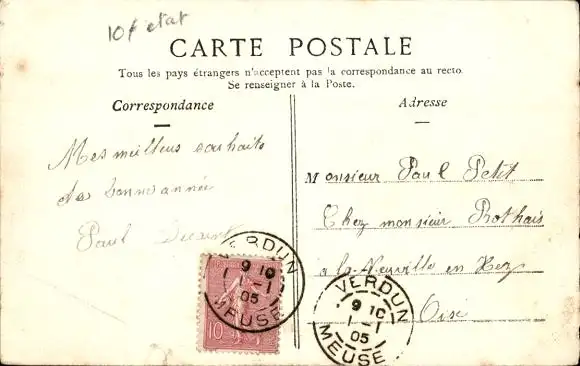 10f etat
CARTE POSTALE
Tous les pays étrangers n'acceptent pas la correspondance au recto.
Se renseigner à la Poste.
Correspondance
Mes meilleurs souhaits
de bonne année
Paul
Adresse
Monsieur Paul Petit
Chez monsieur Rothais
à la Neuville en Hez
Oise
VERDUN
9 10
1-1
05
MEUSE
10
VERDUN
9 10
1-1
05
MEUSE